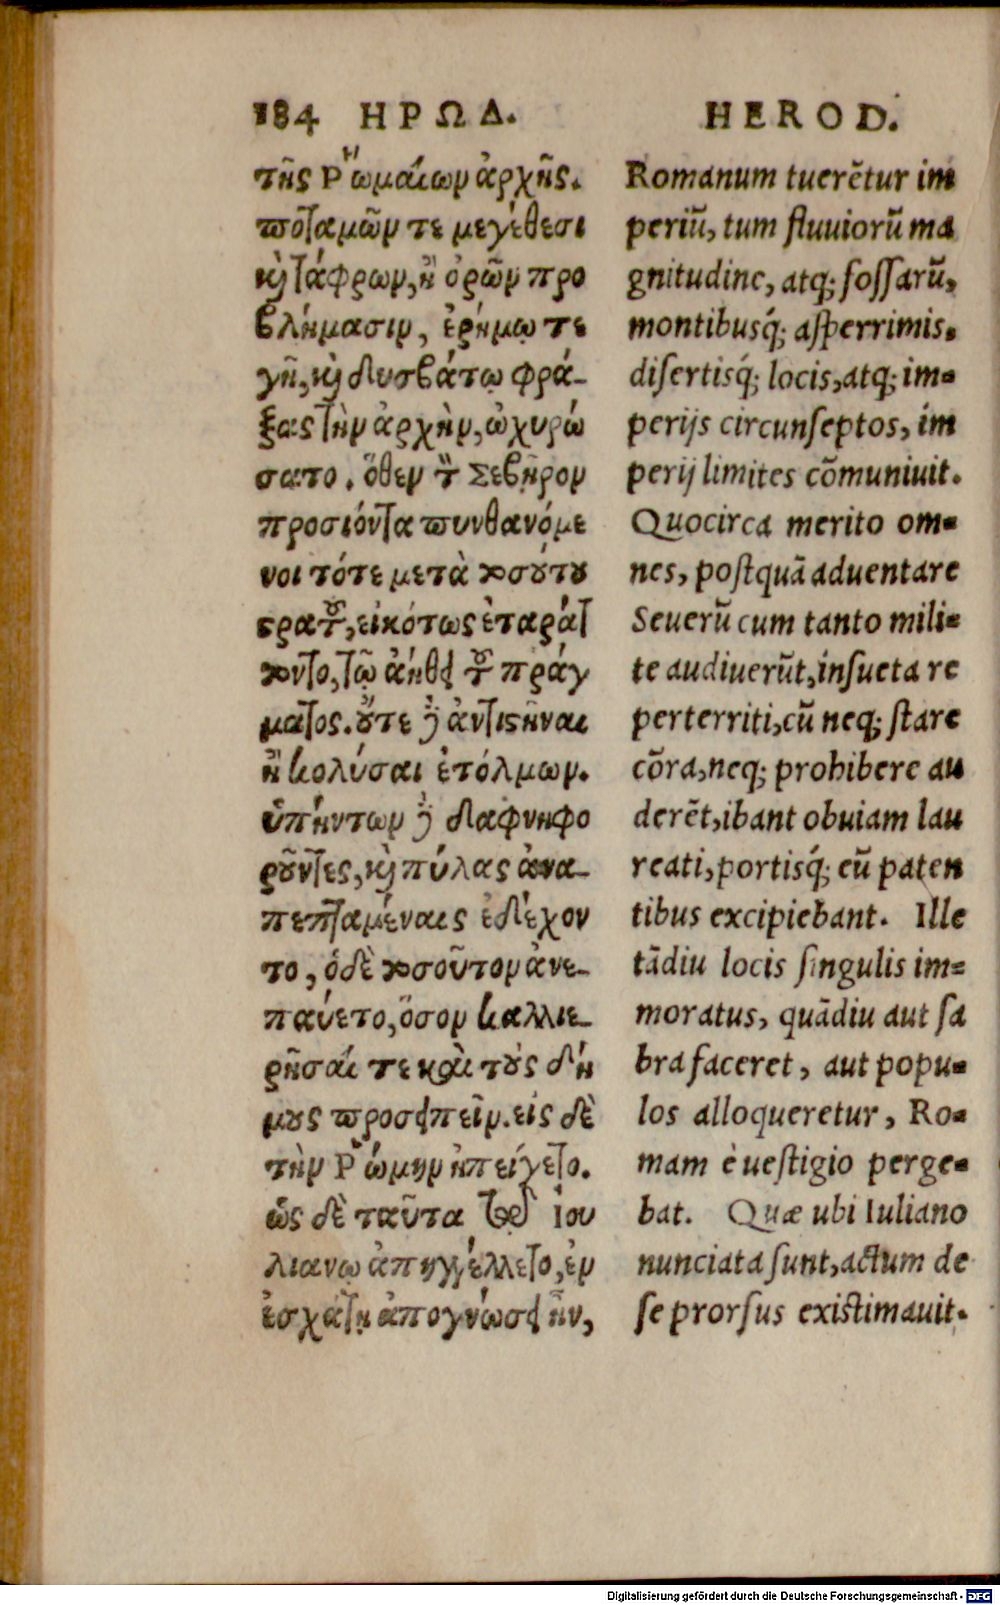 184 ΗΡΩΔ.
τῆς Ῥωμαίων ἀρχῆς.
ποταμῶν τε μεγέθεσι
κỳ τάφρων, ἢ ὀρῶν προ
βλήμασιν, ἐρήμῳ τε
γῇ, κỳ δυσβάτῳ φρά-
ξας τὴν ἀρχὴν, ὠχυρώ
σατο. ὅθεν τὸν Σεβῆρον
προσιόντα πυνθανόμε
νοι τότε μετὰ τοσούτου
στρατοῦ, εἰκότως ἐταράτ
τοντο, τῷ ἀήθει τοῦ πράγ
ματος. οὔτε γὰρ ἀντιστῆναι
ἢ κολύσαι ἐτόλμων.
ὑπήντων δὲ δαφνηφο
ροῦντες, κỳ πύλας ἀνα-
πεπταμέναις ἐδέχον
το, ὁ δὲ τοσοῦτον ἀνε-
παύετο, ὅσον καλλιε-
ρῆσαί τε καὶ τοὺς δή
μους προσειπεῖν. εἰς δὲ
τὴν Ῥώμην ἠπείγετο.
ὡς δὲ ταῦτα τῷ Ἰου
λιανῷ ἀπηγγέλλετο, ἐν
ἐσχάτῃ ἀπογνώσει ἦν,
HEROD.
Romanum tuerẽtur im
periũ, tum fluuiorũ ma
gnitudine, atq; foſſarũ,
montibusq́; aſperrimis,
diſertisq́; locis, atq; im-
perijs circunſeptos, im
perij limites cõmuniuit.
Quocirca merito om-
nes, poſtquã aduentare
Seuerũ cum tanto mili-
te audiuerũt, inſueta re
perterriti, cũ neq; ſtare
cõra, neq; prohibere au
derẽt, ibant obuiam lau
reati, portisq́; eũ paten
tibus excipiebant. Ille
tãdiu locis ſingulis im-
moratus, quãdiu aut ſa
bra faceret, aut popu-
los alloqueretur, Ro-
mam è ueſtigio perge-
bat. Quæ ubi Iuliano
nunciata ſunt, actum de
ſe prorſus existimauit.
Digitalisierung gefördert durch die Deutsche Forschungsgemeinschaft - DFG